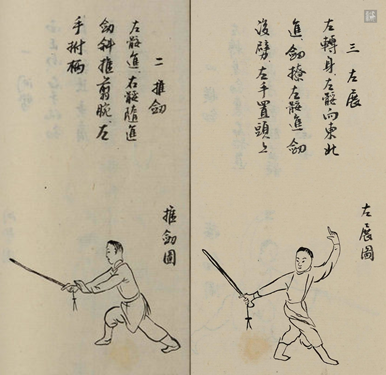 二 推劍
左骽進右骽隨進
劍斜推剪腕左
手柄
推劍圖
三 左展
左轉身左骽向東北
進劍撩左骽進劍
後劈左手置頭上
左展圖